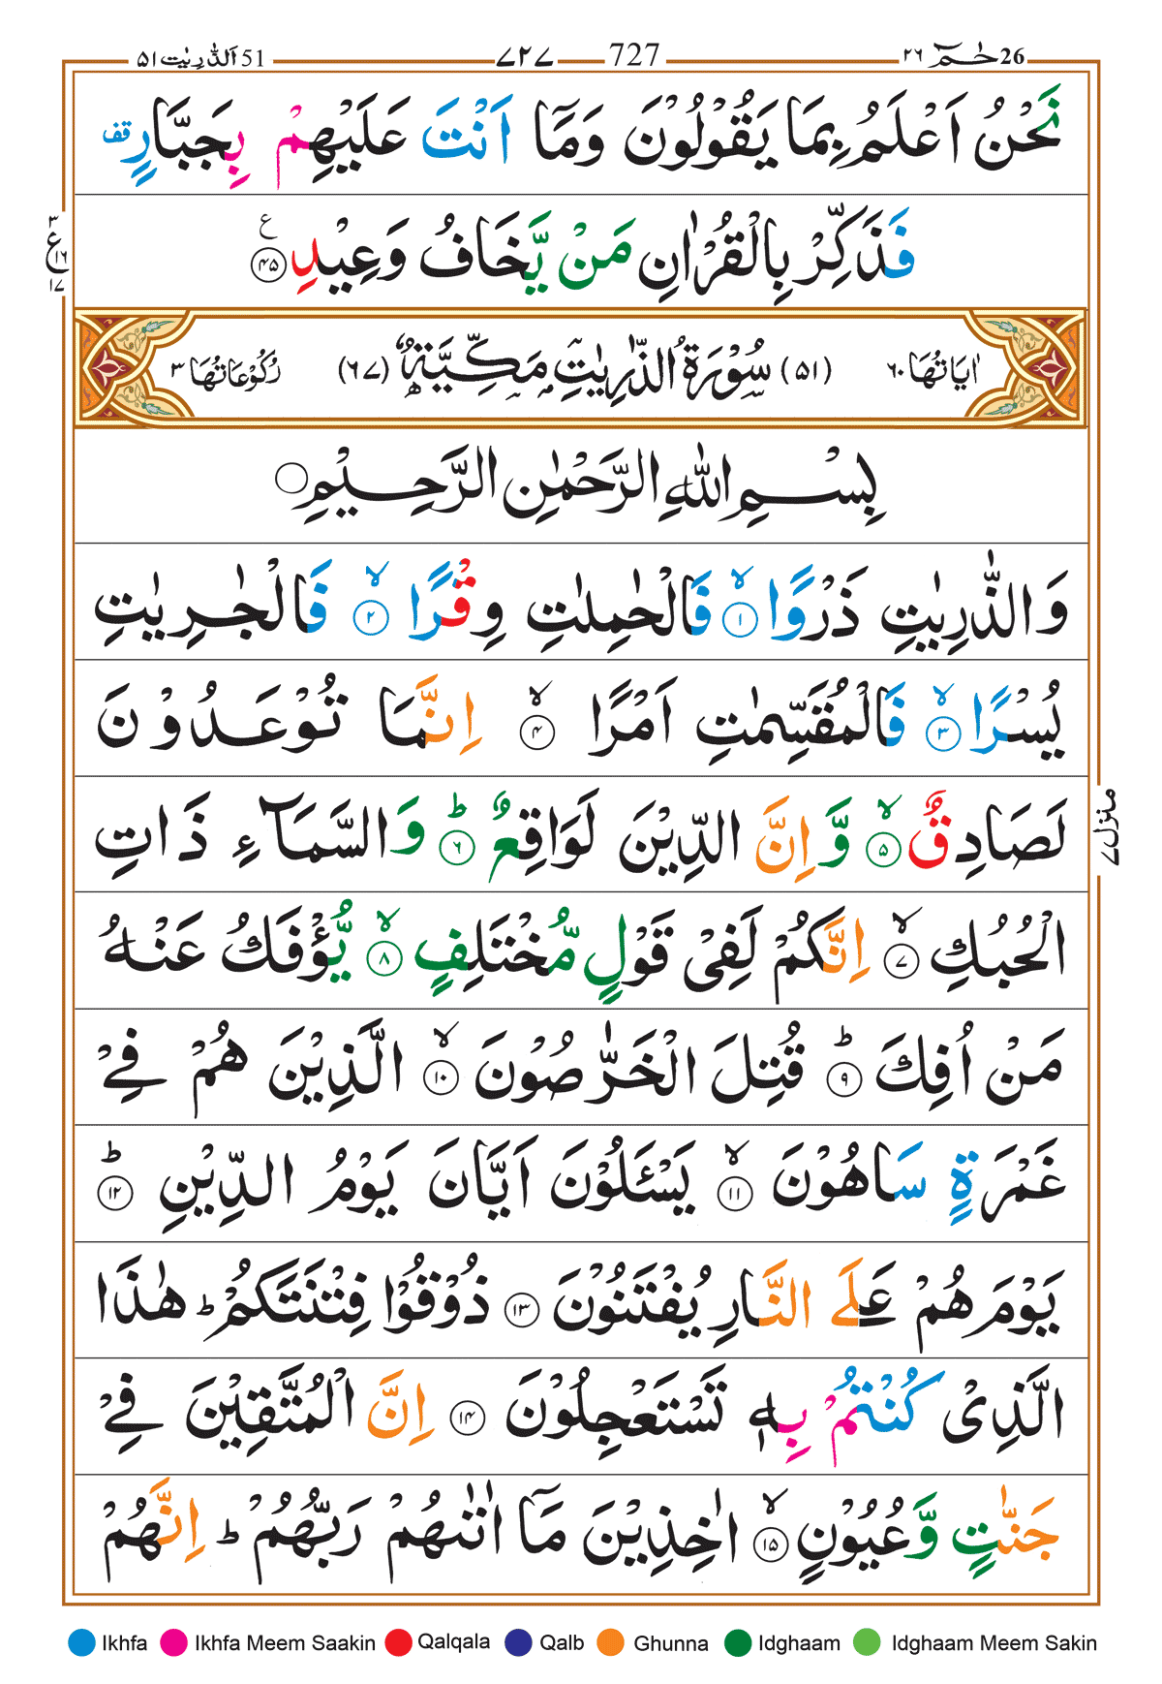 26 حٰمٓ ٢٦ 727 ٧٢٧ 51 اَلذّٰرِيٰت ٥١
نَحْنُ اَعْلَمُ بِمَا يَقُوْلُوْنَ وَمَاۤ اَنْتَ عَلَيْهِمْ بِجَبَّارٍ قف
فَذَكِّرْ بِالْقُرْاٰنِ مَنْ يَّخَافُ وَعِيْدِ ۝٤٥ ع
٣
ع
١٦
١٧
اٰيَاتُهَا ٦٠ (٥١) سُوْرَةُ الذّٰرِيٰتِ مَكِّيَّةٌ (٦٧) رُكُوْعَاتُهَا ٣
بِسْمِ اللّٰهِ الرَّحْمٰنِ الرَّحِيْمِ ۝
وَالذّٰرِيٰتِ ذَرْوًا ۙ۝١ فَالْحٰمِلٰتِ وِقْرًا ۙ۝٢ فَالْجٰرِيٰتِ
يُسْرًا ۙ۝٣ فَالْمُقَسِّمٰتِ اَمْرًا ۙ۝٤ اِنَّمَا تُوْعَدُوْنَ
لَصَادِقٌ ۙ۝٥ وَّاِنَّ الدِّيْنَ لَوَاقِعٌ ؕ۝٦ وَالسَّمَآءِ ذَاتِ
منزل ٧
الْحُبُكِ ۙ۝٧ اِنَّكُمْ لَفِىْ قَوْلٍ مُّخْتَلِفٍ ۙ۝٨ يُّؤْفَكُ عَنْهُ
مَنْ اُفِكَ ؕ۝٩ قُتِلَ الْخَرّٰصُوْنَ ۙ۝١٠ الَّذِيْنَ هُمْ فِىْ
غَمْرَةٍ سَاهُوْنَ ۙ۝١١ يَسْئَلُوْنَ اَيَّانَ يَوْمُ الدِّيْنِ ؕ۝١٢
يَوْمَ هُمْ عَلَى النَّارِ يُفْتَنُوْنَ ۝١٣ ذُوْقُوْا فِتْنَتَكُمْ ؕ هٰذَا
الَّذِىْ كُنْتُمْ بِهٖ تَسْتَعْجِلُوْنَ ۝١٤ اِنَّ الْمُتَّقِيْنَ فِىْ
جَنّٰتٍ وَّعُيُوْنٍ ۙ۝١٥ اٰخِذِيْنَ مَاۤ اٰتٰىهُمْ رَبُّهُمْ ؕ اِنَّهُمْ
Ikhfa Ikhfa Meem Saakin Qalqala Qalb Ghunna Idghaam Idghaam Meem Sakin